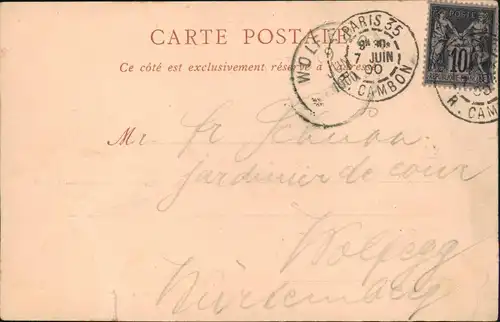 CARTE POSTALE
Ce côté est exclusivement réservé à l'adresse
PARIS 35
7 JUIN
00
R. CAMBON
WOLF
POSTE
10
R. CAM
Mr. fr
Jardinier de cour
Wolfegg
Würtemberg